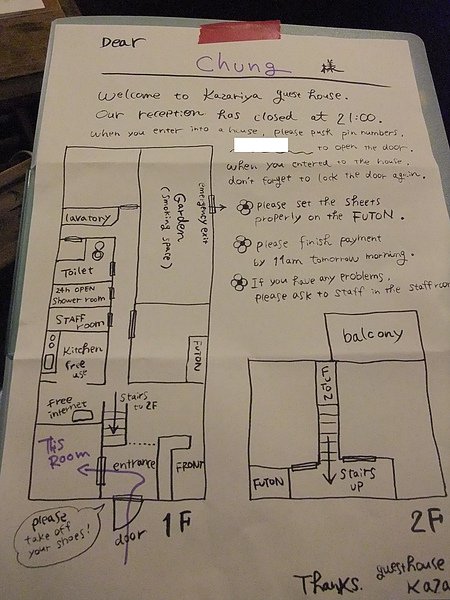 Dear
Chung 様
Welcome to Kazariya guest house.
Our reception has closed at 21:00.
When you enter into a house, please push pin numbers,
to open the door.
When you entered to the house,
don't forget to lock the door again.
please set the sheets
properly on the FUTON.
please finish payment
by 11am tomorrow morning.
If you have any problems,
please ask to staff in the staffroom
lavatory
Toilet
24h OPEN
Shower room
STAFF
room
Kitchen
free
use
free
internet
This
Room
Garden
(smoking space)
emergency exit
FUTON
stairs
to 2F
entrance
FRONT
please
take off
your shoes!
door
1F
balcony
FUTON
FUTON
stairs
UP
2F
Thanks. guesthouse
Kaza